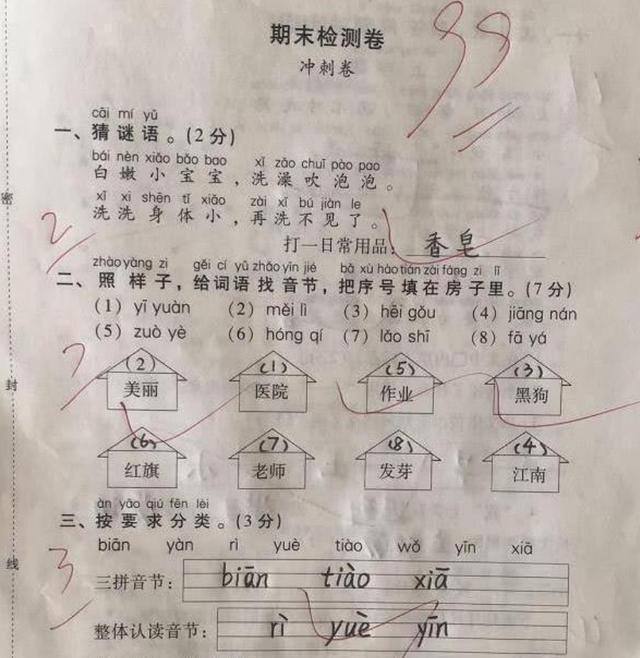 期末检测卷
99
冲刺卷
cāi mí yǔ
一、猜谜语。(2分)
bái nèn xiǎo bǎo bao xǐ zǎo chuī pào pao
白嫩小宝宝，洗澡吹泡泡。
xǐ xi shēn tǐ xiǎo zài xǐ bú jiàn le
洗洗身体小，再洗不见了。
2
打一日常用品：香皂
zhào yàng zi gěi cí yǔ zhǎo yīn jié bǎ xù hào tián zài fáng zi lǐ
二、照样子，给词语找音节，把序号填在房子里。(7分)
(1) yī yuàn (2) měi lì (3) hēi gǒu (4) jiāng nán
(5) zuò yè (6) hóng qí (7) lǎo shī (8) fā yá
7
(2) (1) (5) (3)
美丽 医院 作业 黑狗
(6) (7) (8) (4)
红旗 老师 发芽 江南
àn yāo qiú fēn lèi
三、按要求分类。(3分)
biān yàn rì yuè tiào wǒ yīn xiā
3
三拼音节：biān tiào xiā
整体认读音节：rì yuè yīn
密
封
线